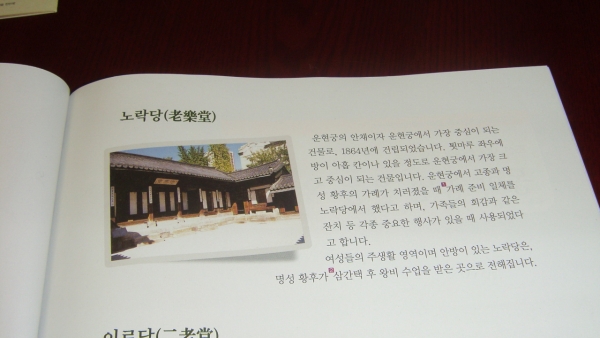 노락당(老樂堂)
운현궁의 안채이자 운현궁에서 가장 중심이 되는
건물로, 1864년에 건립되었습니다. 툇마루 좌우에
방이 아홉 칸이나 있을 정도로 운현궁에서 가장 크
고 중심이 되는 건물입니다. 운현궁에서 고종과 명
성 황후의 가례가 치러졌을 때 가례 준비 일체를
노락당에서 했다고 하며, 가족들의 회갑과 같은
잔치 등 각종 중요한 행사가 있을 때 사용되었다
고 합니다.
여성들의 주생활 영역이며 안방이 있는 노락당은,
명성 황후가 삼간택 후 왕비 수업을 받은 곳으로 전해집니다.
이로당(二老堂)